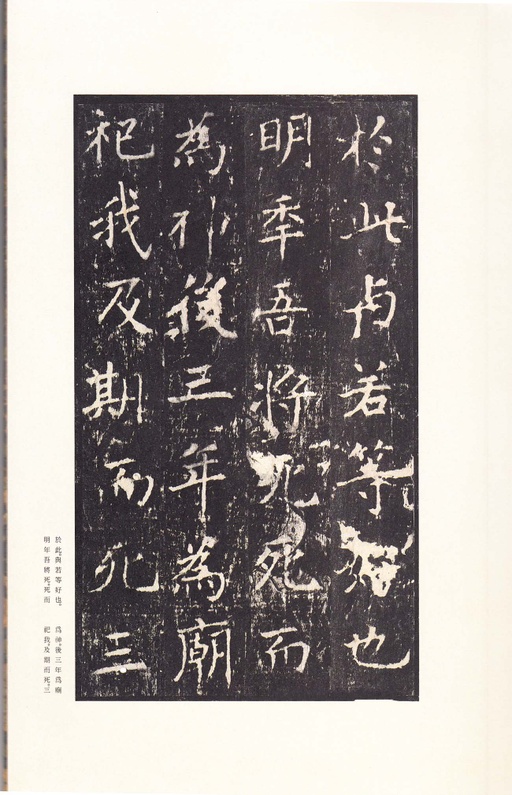 於此與若等好也
明年吾將死死而
為神後三年為廟
祀我及期而死三
於此。與若等好也。
明年吾將死。死而
為神。後三年為廟
祀我。及期而死。三